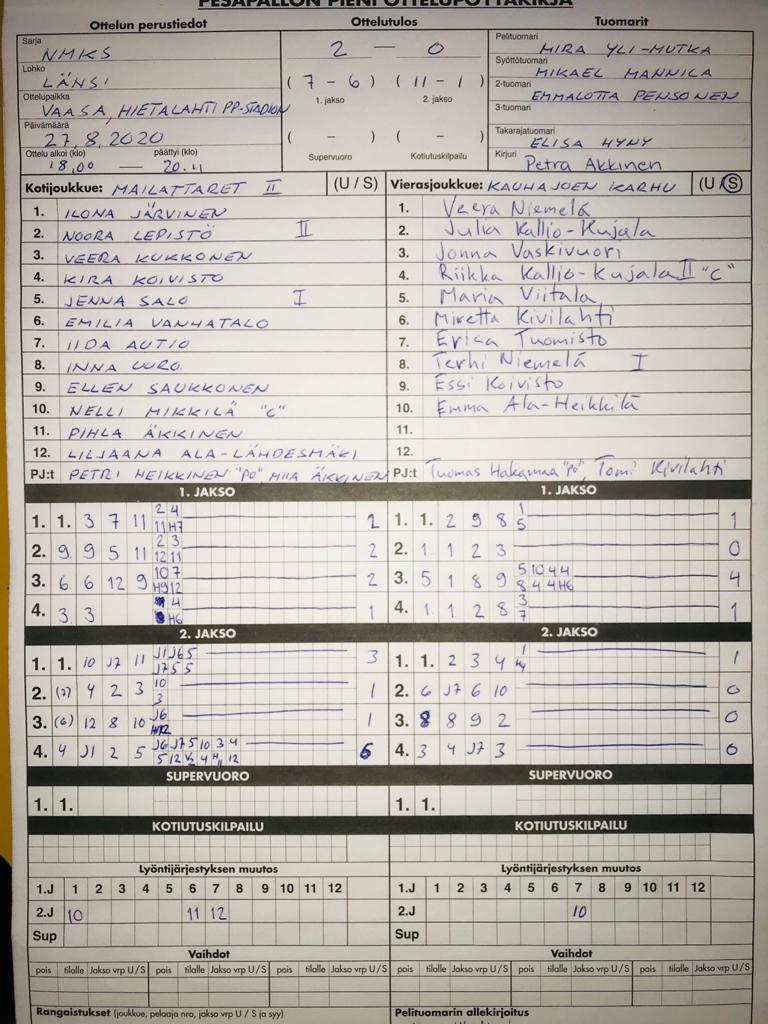 PESÄPALLON PIENI OTTELUPÖYTÄKIRJA
Ottelun perustiedot
Sarja
NMKS
Lohko
LÄNSI
Ottelupaikka
VAASA, HIETALAHTI PP-STADION
Päivämäärä
27.8.2020
Ottelu alkoi (klo) päättyi (klo)
18.00 — 20.11
Ottelutulos
2 — 0
( 7 - 6 ) ( 11 - 1 )
1. jakso 2. jakso
( - ) ( - )
Supervuoro Kotiutuskilpailu
Tuomarit
Pelituomari
MIRA YLI-MUTKA
Syöttötuomari
MIKAEL MANNILA
2-tuomari
EMMALOTTA PENSONEN
3-tuomari
Takarajatuomari
ELISA HYNY
Kirjuri
Petra Äkkinen
Kotijoukkue: MAILATTARET II (U / S)
1. ILONA JÄRVINEN
2. NOORA LEPISTÖ II
3. VEERA KUKKONEN
4. KIRA KOIVISTO
5. JENNA SALO I
6. EMILIA VANHATALO
7. IIDA AUTIO
8. INNA UURO
9. ELLEN SAUKKONEN
10. NELLI MIKKILÄ "C"
11. PIHLA ÄKKINEN
12. LILJAANA ALA-LÄHDESMÄKI
PJ:t PETRI HEIKKINEN "PO", MIIA ÄKKINEN
Vierasjoukkue: KAUHAJOEN KARHU (U / S)
1. Veera Niemelä
2. Julia Kallio-Kujala
3. Jonna Vaskivuori
4. Riikka Kallio-Kujala II "C"
5. Maria Viitala
6. Miretta Kivilahti
7. Erica Tuomisto
8. Terhi Niemelä I
9. Essi Koivisto
10. Emma Ala-Heikkilä
11.
12.
PJ:t Tuomas Hakamaa "PO", Tomi Kivilahti
1. JAKSO
1. 1. 3 7 11 2 4
11 H7 2
2. 9 9 5 11 2 3
12 11 2
3. 6 6 12 9 10 7
H9 12 2
4. 3 3 4
H6 1
1. JAKSO
1. 1. 2 9 8 1
5 1
2. 1 1 2 3 0
3. 5 1 8 9 5 10 4 4
8 4 4 H6 4
4. 1 1 2 8 3
7 1
2. JAKSO
1. 1. 10 J7 11 J1 J6 5
J7 5 5 3
2. (7) 4 2 3 10
3 1
3. (6) 12 8 10 J6
1
4. 4 J1 2 5 J6 J7 5 10 3 4
5 12 4 12 6
2. JAKSO
1. 1. 2 3 4 1
H4 1
2. 6 J7 6 10 0
3. 8 8 9 2 0
4. 3 4 J7 3 0
SUPERVUORO
1. 1.
SUPERVUORO
1. 1.
KOTIUTUSKILPAILU
KOTIUTUSKILPAILU
Lyöntijärjestyksen muutos
1.J 1 2 3 4 5 6 7 8 9 10 11 12
2.J 10 11 12
Sup
Lyöntijärjestyksen muutos
1.J 1 2 3 4 5 6 7 8 9 10 11 12
2.J 10
Sup
Vaihdot
pois tilalle Jakso vrp U / S pois tilalle Jakso vrp U / S pois tilalle Jakso vrp U / S
Vaihdot
pois tilalle Jakso vrp U / S pois tilalle Jakso vrp U / S pois tilalle Jakso vrp U / S
Rangaistukset (joukkue, pelaaja nro, jakso vrp U / S ja syy)
Pelituomarin allekirjoitus